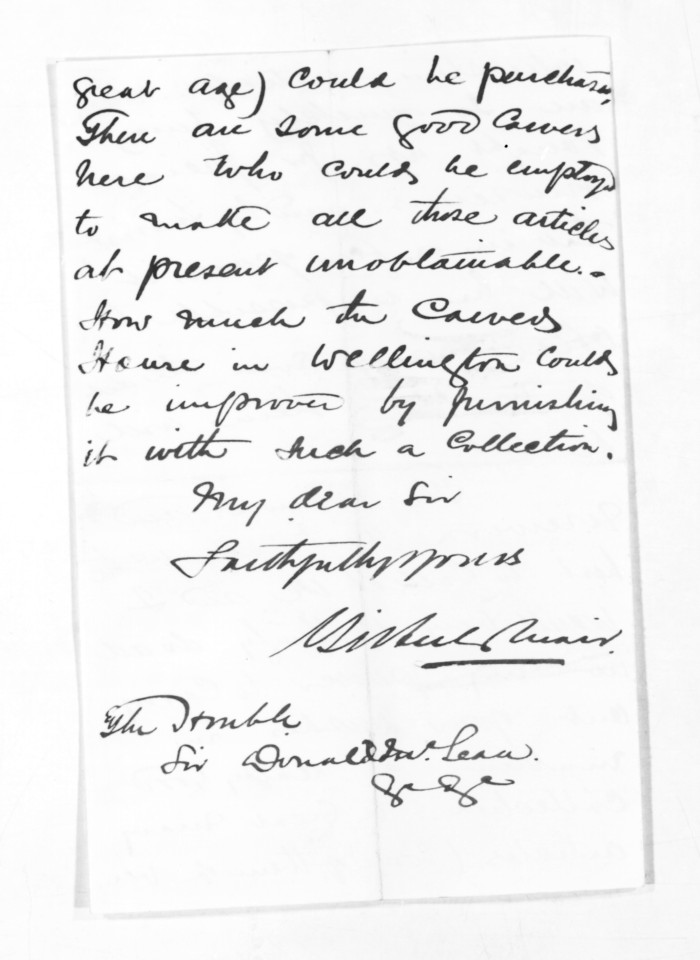 great age) could be purchased,
There are some good Carvers
here who could be employed
to make all those articles
at present unobtainable. -
How much the Carved
House in Wellington could
be improved by furnishing
it with such a Collection.
My dear Sir
Faithfully yours
Gilbert Mair.
The Honble
Sir Donald McLean.
&c &c